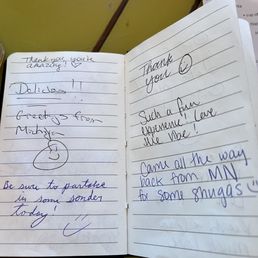 Thank you, you're
amazing! ♡
Delicious!!
Greetings from
Michigan
Be sure to partake
in some sonder
today!
Thank
you
Such a fun
experience! Love
the vibe!
Came all the way
back from MN
for some shugas